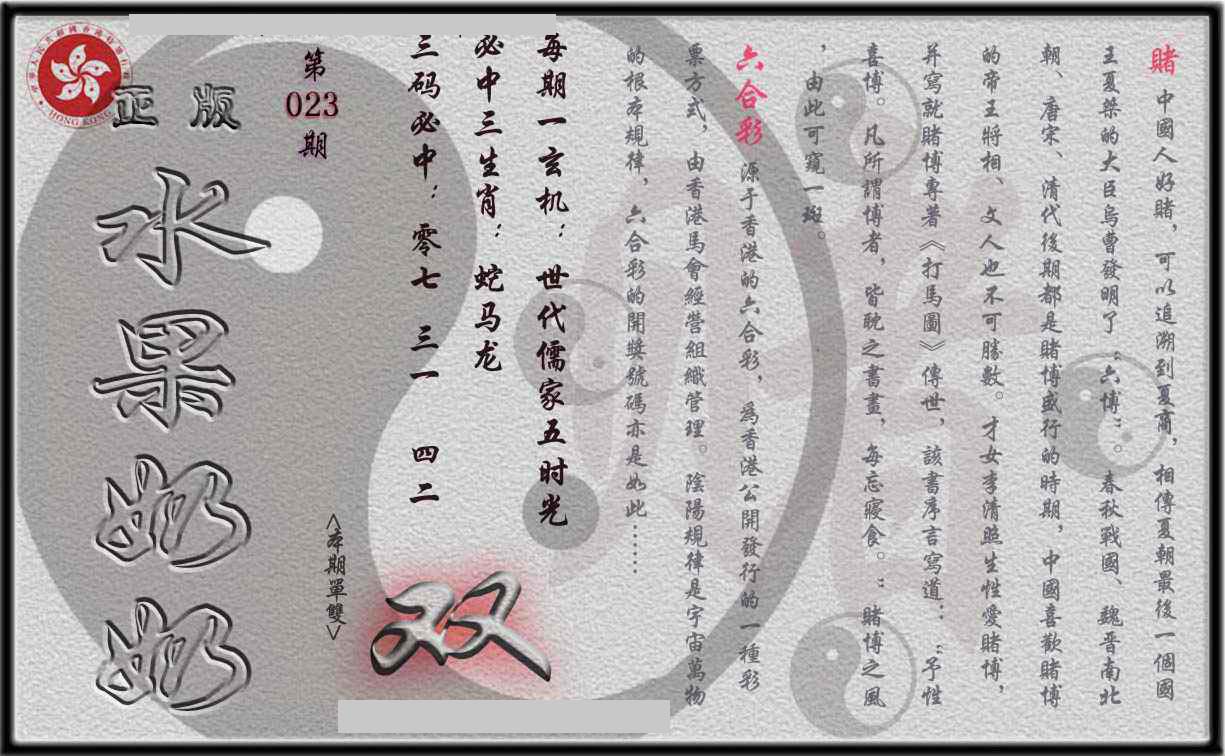 賭 中國人好賭，可以追溯到夏商，相傳夏朝最後一個國
王夏桀的大臣烏曹發明了“六博”。春秋戰國、魏晋南北
朝、唐宋、清代後期都是賭博盛行的時期，中國喜歡賭博
的帝王將相、文人也不可勝數。才女李清照生性愛賭博，
并寫就賭博專著《打馬圖》傳世，該書序言寫道：“予性
喜博。凡所謂博者，皆耽之書畫，每忘寢食。”賭博之風
，由此可窺一斑。
六合彩 源于香港的六合彩，爲香港公開發行的一種彩
票方式，由香港馬會經營組織管理。陰陽規律是宇宙萬物
的根本規律，六合彩的開獎號碼亦是如此……
每期一玄机：世代儒家五时光
必中三生肖：蛇马龙
三码必中：零七 三一 四二
第
023
期
<本期單雙>
双
正版
水果奶奶
HONG KONG